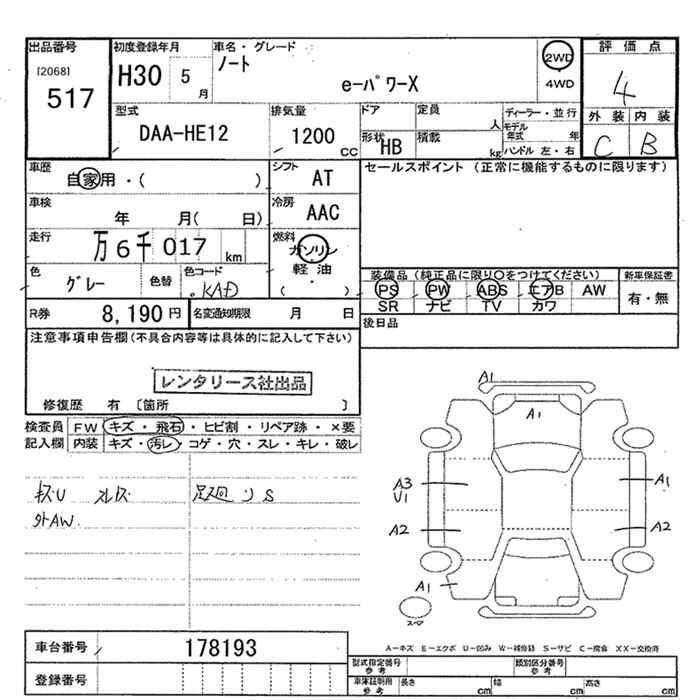 出品番号
[2068]
517
初度登録年月
H30 5
月
車名・グレード
ノート
e-パワーX
2WD
4WD
評価点
4
外装 内装
C B
型式
DAA-HE12
排気量
1200
CC
ドア
形状
HB
定員
人
積載
kg
ディーラー・並行
モデル
年式 年
ハンドル 左・右
車歴
自家用・( )
シフト
AT
セールスポイント (正常に機能するものに限ります)
車検
年 月( 日)
冷房
AAC
走行
万6千017
km
燃料
ガソリン
軽油
( ・ )
色
グレー
色替
色コード
KAD
装備品(純正品に限り○をつけてください)
PS PW ABS エアB AW
SR ナビ TV カワ
新車保証書
有・無
R券
8,190円
名変通知期限
月 日
後日品
注意事項申告欄(不具合内容等は具体的に記入して下さい)
レンタリース社出品
修復歴 有 [箇所 ]
検査員
記入欄
FW キズ・飛石・ヒビ割・リペア跡・×要
内装 キズ・汚レ・コゲ・穴・スレ・キレ・破レ
キズU スレキズ
足廻リS
外AW
A1
A1
A3
U1
A1
A2
A2
A1
スマ
A-キズ E-エクボ U-凹み W-補修跡 S-サビ C-腐食 XX-交換済
車台番号
178193
登録番号
型式指定番号
参考
類別区分番号
参考
車庫証明用
参考
長さ
cm
幅
cm
高さ
cm